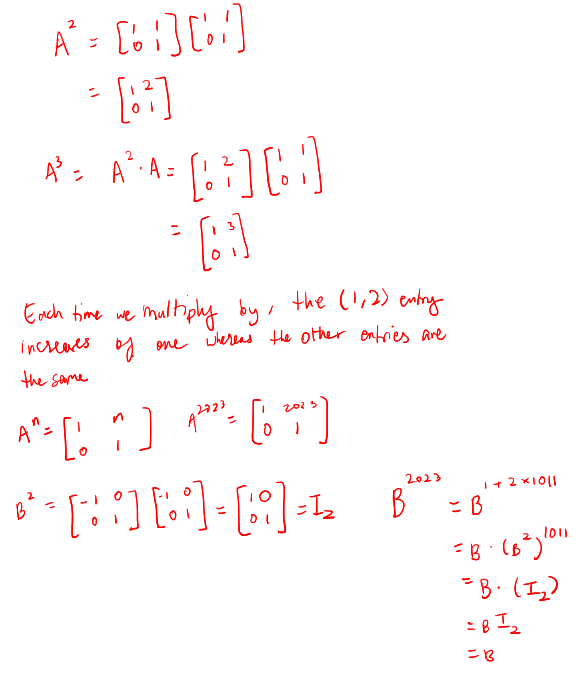 A² = [1 1; 0 1][1 1; 0 1]
= [1 2; 0 1]
A³ = A² · A = [1 2; 0 1][1 1; 0 1]
= [1 3; 0 1]
Each time we multiply by, the (1,2) entry
increases of one whereas the other entries are
the same
Aⁿ = [1 n; 0 1] A²⁰²³ = [1 2023; 0 1]
B² = [-1 0; 0 1][-1 0; 0 1] = [1 0; 0 1] = I₂
B²⁰²³ = B^(1 + 2 × 1011)
= B · (B²)¹⁰¹¹
= B · (I₂)
= B I₂
= B